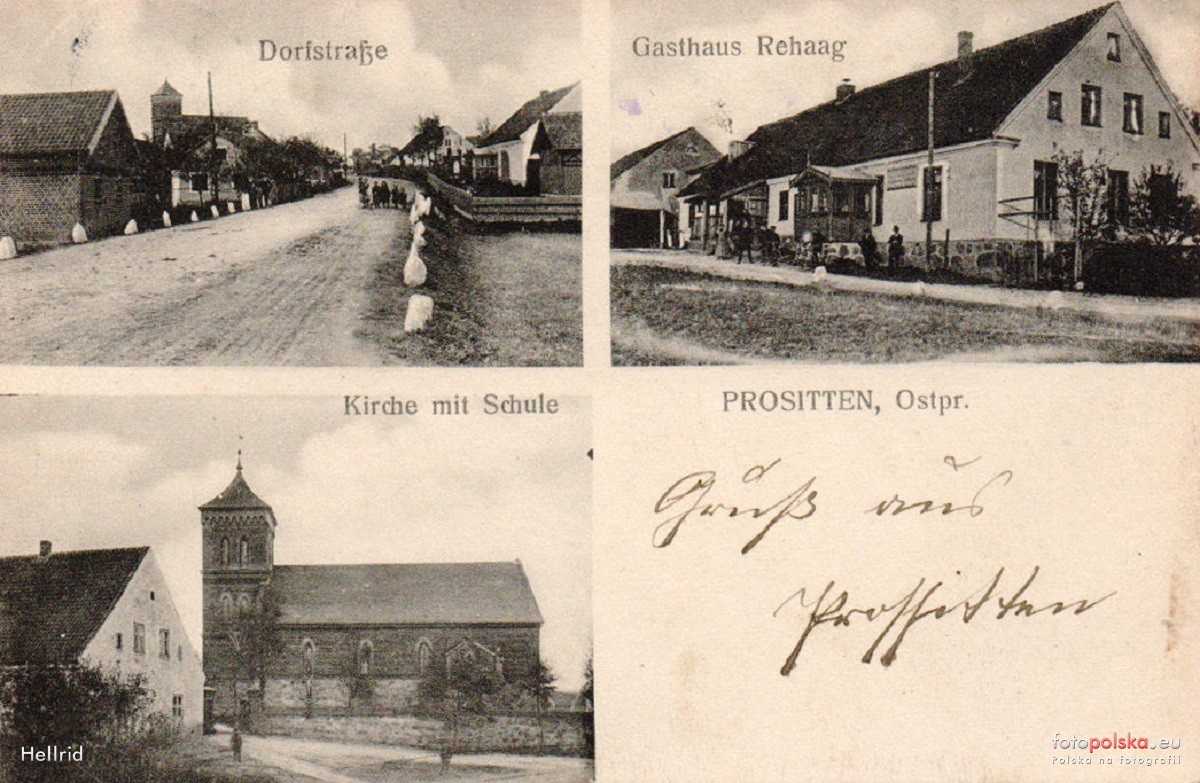 Dorfstraße
Gasthaus Rehaag
Kirche mit Schule
PROSITTEN, Ostpr.
Gruß aus
Prossitten
Hellrid
fotopolska.eu
Polska na fotografii